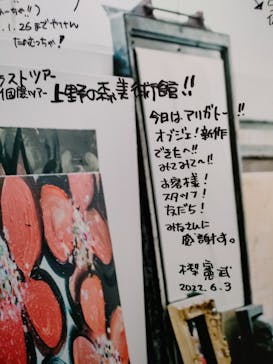 1.26までやってん
だむっちゃ!
ラストツアー
個展ツアー 上野の森美術館!!
今日はアリガトー!!
オブジェ!新作
できたへ!!
みてみてへ!!
お客様!
スタッフ!
ともだち!
みなさんに
感謝す。
2022.6.3